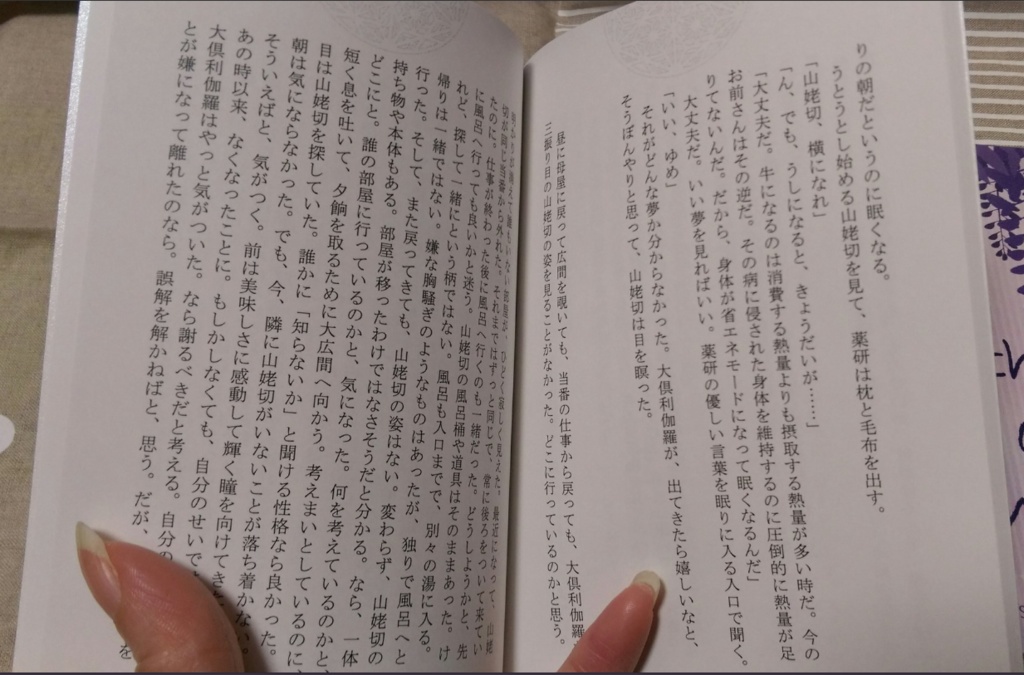 りの朝だというのに眠くなる。
うとうとし始める山姥切を見て、薬研は枕と毛布を出す。
「山姥切、横になれ」
「ん、でも、うしになると、きょうだいが……」
「大丈夫だ。牛になるのは消費する熱量よりも摂取する熱量が多い時だ。今の
お前さんはその逆だ。その病に侵された身体を維持するのに圧倒的に熱量が足
りてないんだ。だから、身体が省エネモードになって眠くなるんだ」
大丈夫だ。いい夢を見ればいい。薬研の優しい言葉を眠りに入る入口で聞く。
「いい、ゆめ」
それがどんな夢か分からなかった。大倶利伽羅が、出てきたら嬉しいなと、
そうぼんやりと思って、山姥切は目を瞑った。
昼に母屋に戻って広間を覗いても、当番の仕事から戻っても、大倶利伽羅
三振り目の山姥切の姿を見ることがなかった。どこに行っているのかと思う。
ひどく寂しく見えた。最近になって、山姥
切が同じ当番から外れた。それまではずっと同じで、常に後ろをついて来てい
たのに。仕事が終わった後に風呂へ行くのも一緒だった。どうしようかと、先
に風呂へ行っても良いかと迷う。山姥切の風呂桶や道具はそのままあった。け
れど、探して一緒にという柄ではない。風呂も入口までで、別々の湯に入る。
帰りは一緒ではない。嫌な胸騒ぎのようなものはあったが、独りで風呂へと
行った。そして、また戻ってきても、山姥切の姿はない。変わらず、山姥切の
持ち物や本体もある。部屋が移ったわけではなさそうだと分かる。なら、一体
どこにと。誰の部屋に行っているのかと、気になった。何を考えているのかと、
短く息を吐いて、夕餉を取るために大広間へ向かう。考えまいとしているのに、
目は山姥切を探していた。誰かに「知らないか」と聞ける性格なら良かった。
朝は気にならなかった。でも、今、隣に山姥切がいないことが落ち着かない。
そういえばと、気がつく。前は美味しさに感動して輝く瞳を向けてきた
あの時以来、なくなったことに。もしかしなくても、自分のせいで
大倶利伽羅はやっと気がついた。なら謝るべきだと考える。自分の
とが嫌になって離れたのなら。誤解を解かねばと、思う。だが、 を